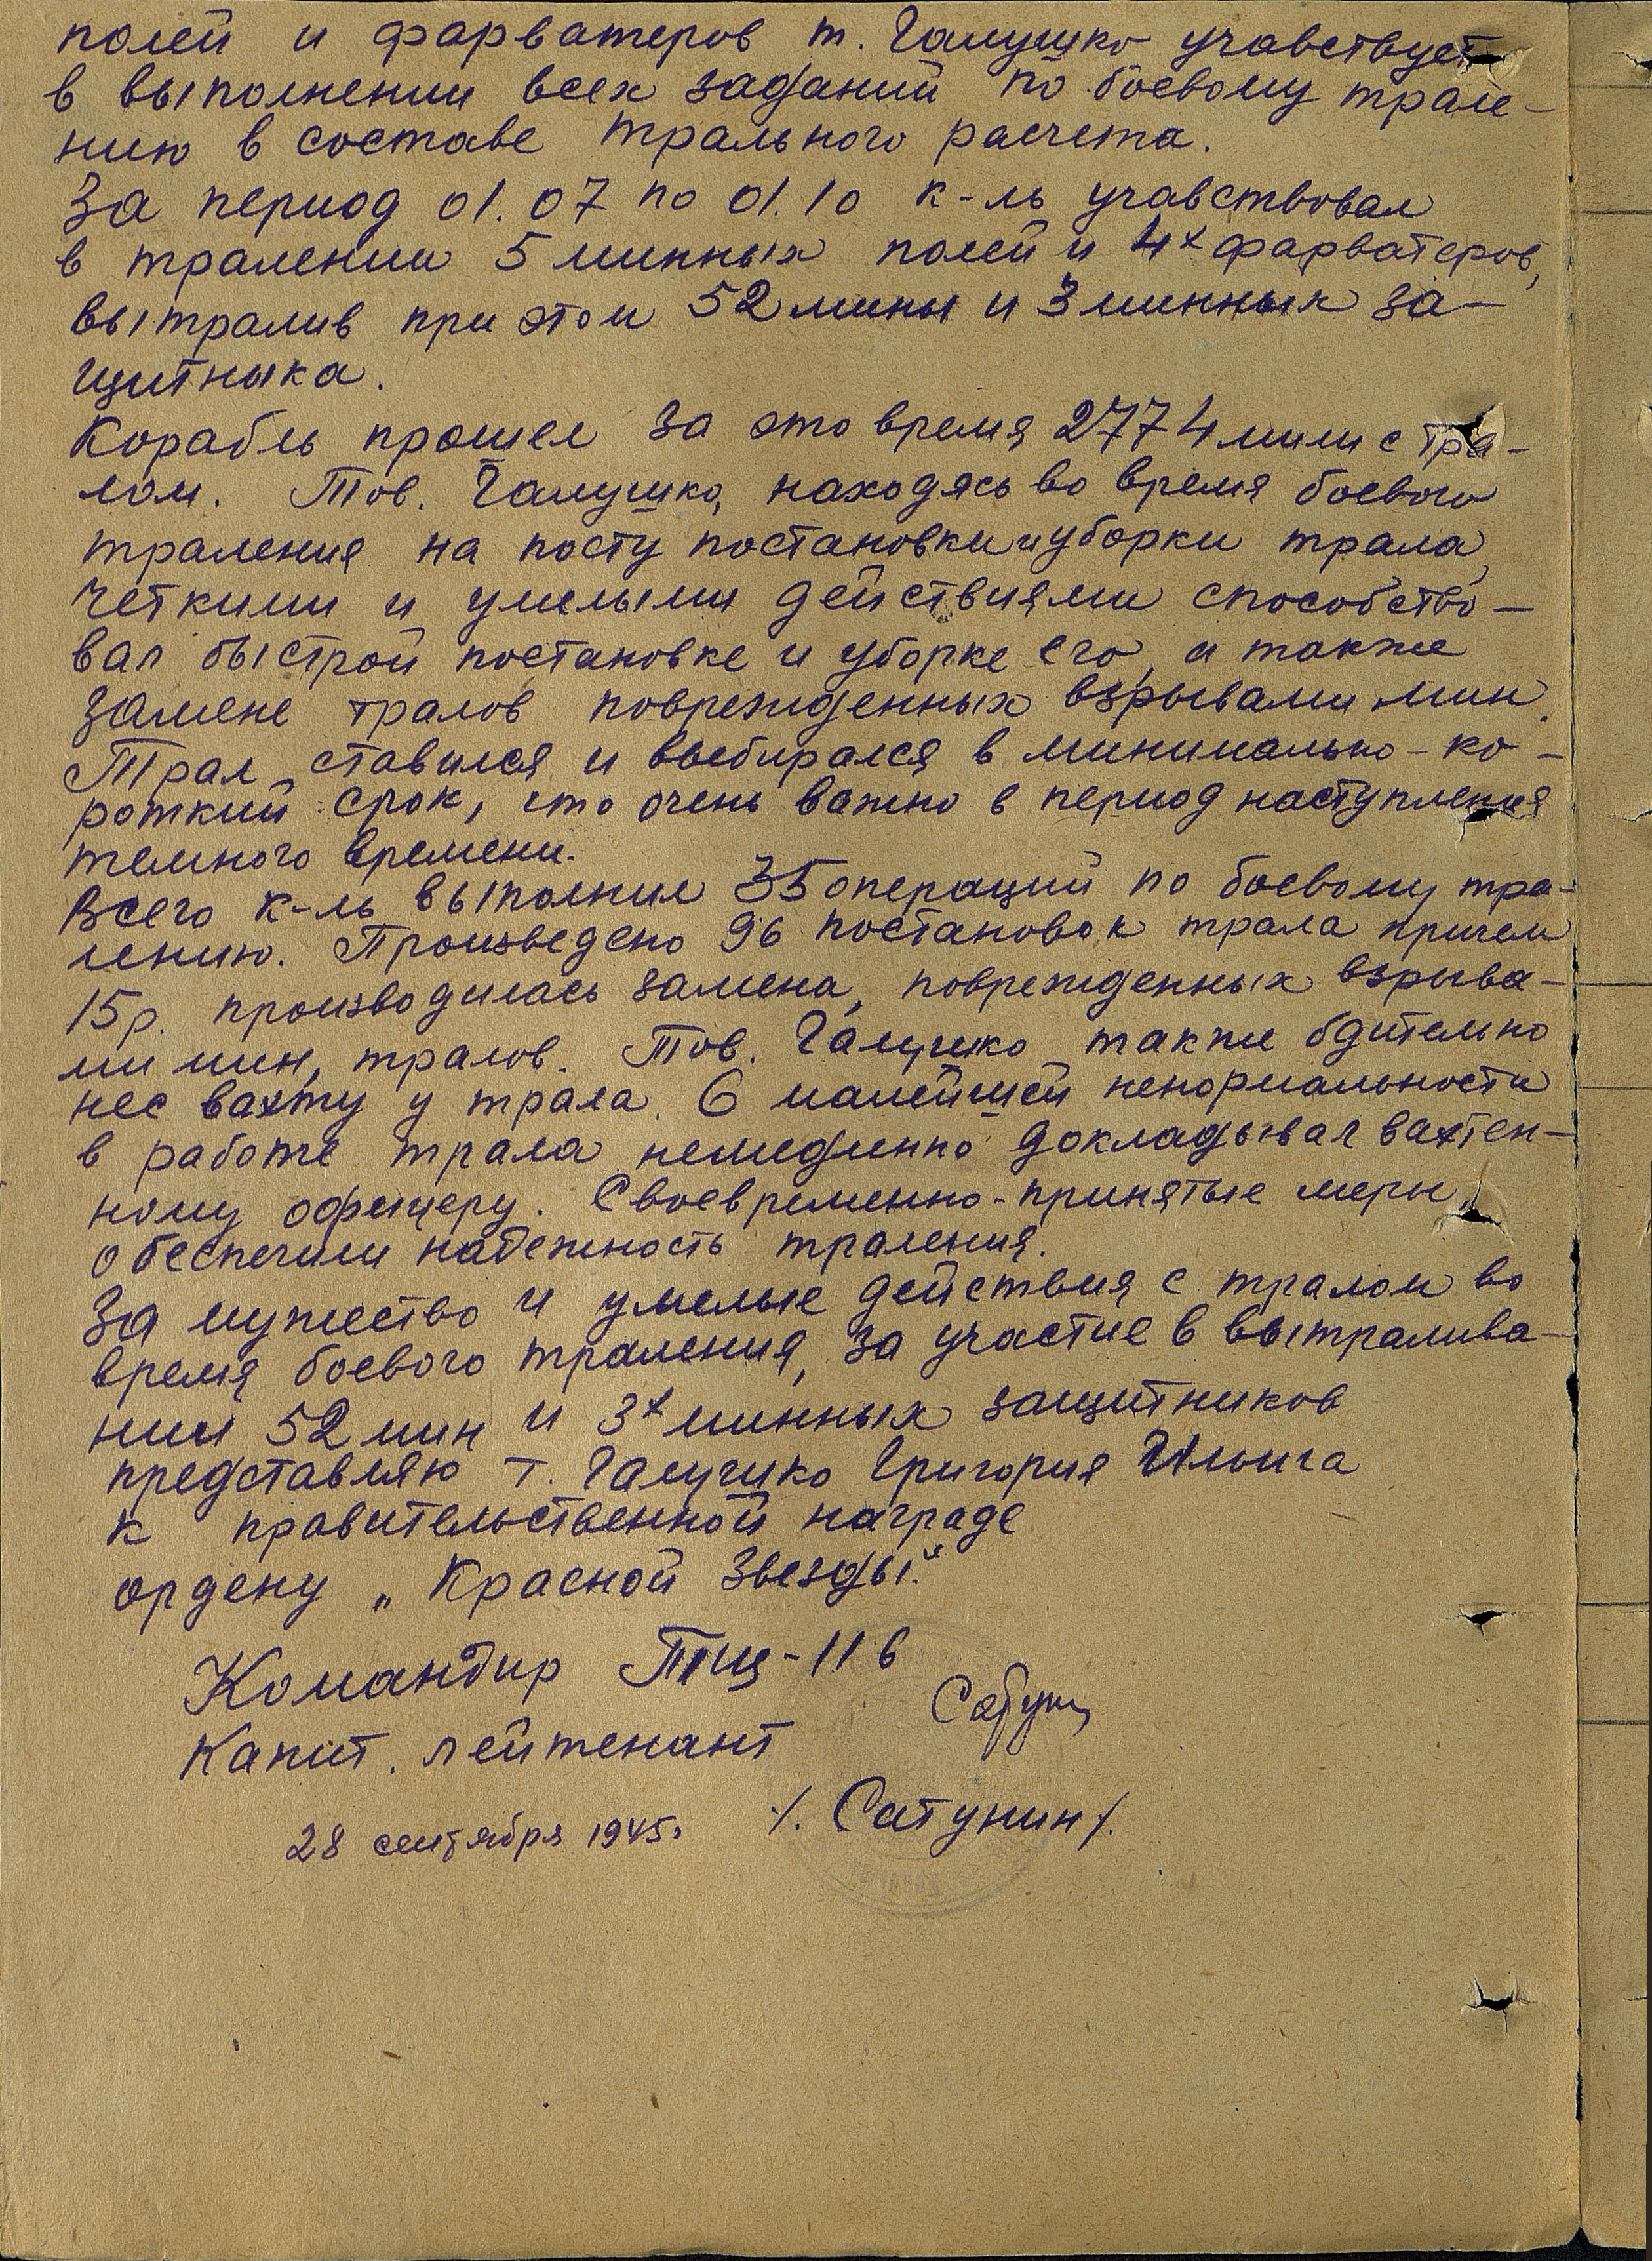 полей и фарватеров т. Галушко учавствует
в выполнении всех заданий по боевому трале-
нию в составе трального расчета.
За период 01.07 по 01.10 к-ль учавствовал
в тралении 5 минных полей и 4х фарватеров,
вытралив при этом 52 мины и 3 минных за-
щитника.
Корабль прошел за это время 2774 мили с тра-
лом. Тов. Галушко, находясь во время боевого
траления на посту постановки и уборки трала,
четкими и умелыми действиями способство-
вал быстрой постановке и уборке его, а также
замене тралов поврежденных взрывами мин.
Трал ставился и выбирался в минимально-ко-
роткий срок, что очень важно в период наступления
темного времени.
Всего к-ль выполнил 35 операций по боевому тра-
лению. Произведено 96 постановок трала причем
15 р. производилась замена, поврежденных взрыва-
ми мин, тралов. Тов. Галушко также бдительно
нес вахту у трала. О малейшей ненормальности
в работе трала немедленно докладывал вахтен-
ному офицеру. Своевременно-принятые меры,
обеспечили надежность траления.
За мужество и умелые действия с тралом во
время боевого траления, за участие в вытралива-
нии 52 мин и 3х минных защитников
представляю т. Галушко Григория Ильича
к правительственной награде
ордену „Красной Звезды".
Командир Тщ-116
Капит. лейтенант
/. Сатунин/.
28 сентября 1945г